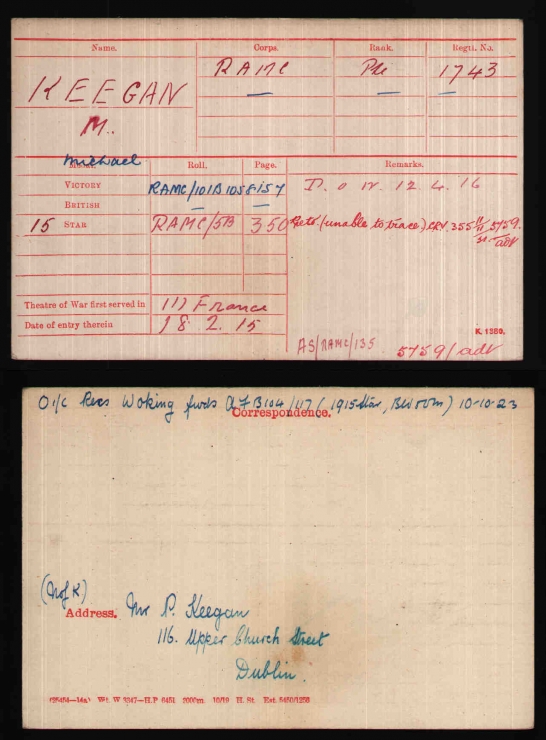 Name. Corps. Rank. Regtl. No.
KEEGAN RAMC Pte 1743
M.
Michael
Roll. Page. Remarks.
VICTORY RAMC/101B105 8157 D. o W. 12.4.16
BRITISH
15 STAR RAMC/5B 350 Retd. (unable to trace) CRV. 355 5759. adt
Theatre of War first served in (1) France
Date of entry therein 18.2.15
K. 1380.
AS/RAMC/135 5759/adt
O i/c Recs Woking fwds AFB104/117 (1915 Star, BW & VM) 10-10-23
Correspondence.
(N of K)
Address. Mr P. Keegan
116. Upper Church Street
Dublin.
Wt. W 3347—H.P 6451 2000m. 10/19 H. St. Est. 5400/1258